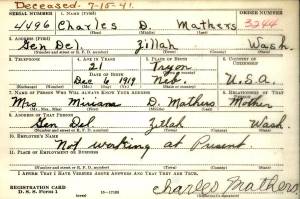 Deceased. 7-15-41.
SERIAL NUMBER 1. NAME (Print) ORDER NUMBER
4496 Charles D. Mathers 3244
2. ADDRESS (Print)
Gen Del. Zillah Wash.
3. TELEPHONE 4. AGE IN YEARS 5. PLACE OF BIRTH 6. COUNTRY OF CITIZENSHIP
21 Tryon
DATE OF BIRTH
Dec. 6, 1919 Neb. U.S.A.
7. NAME OF PERSON WHO WILL ALWAYS KNOW YOUR ADDRESS 8. RELATIONSHIP OF THAT PERSON
Mrs. Miriam D. Mathers Mother
9. ADDRESS OF THAT PERSON
Gen Del. Zillah Wash.
10. EMPLOYER'S NAME
Not working at Present.
11. PLACE OF EMPLOYMENT OR BUSINESS
I AFFIRM THAT I HAVE VERIFIED ABOVE ANSWERS AND THAT THEY ARE TRUE.
REGISTRATION CARD
D. S. S. Form 1
Charles Mathers